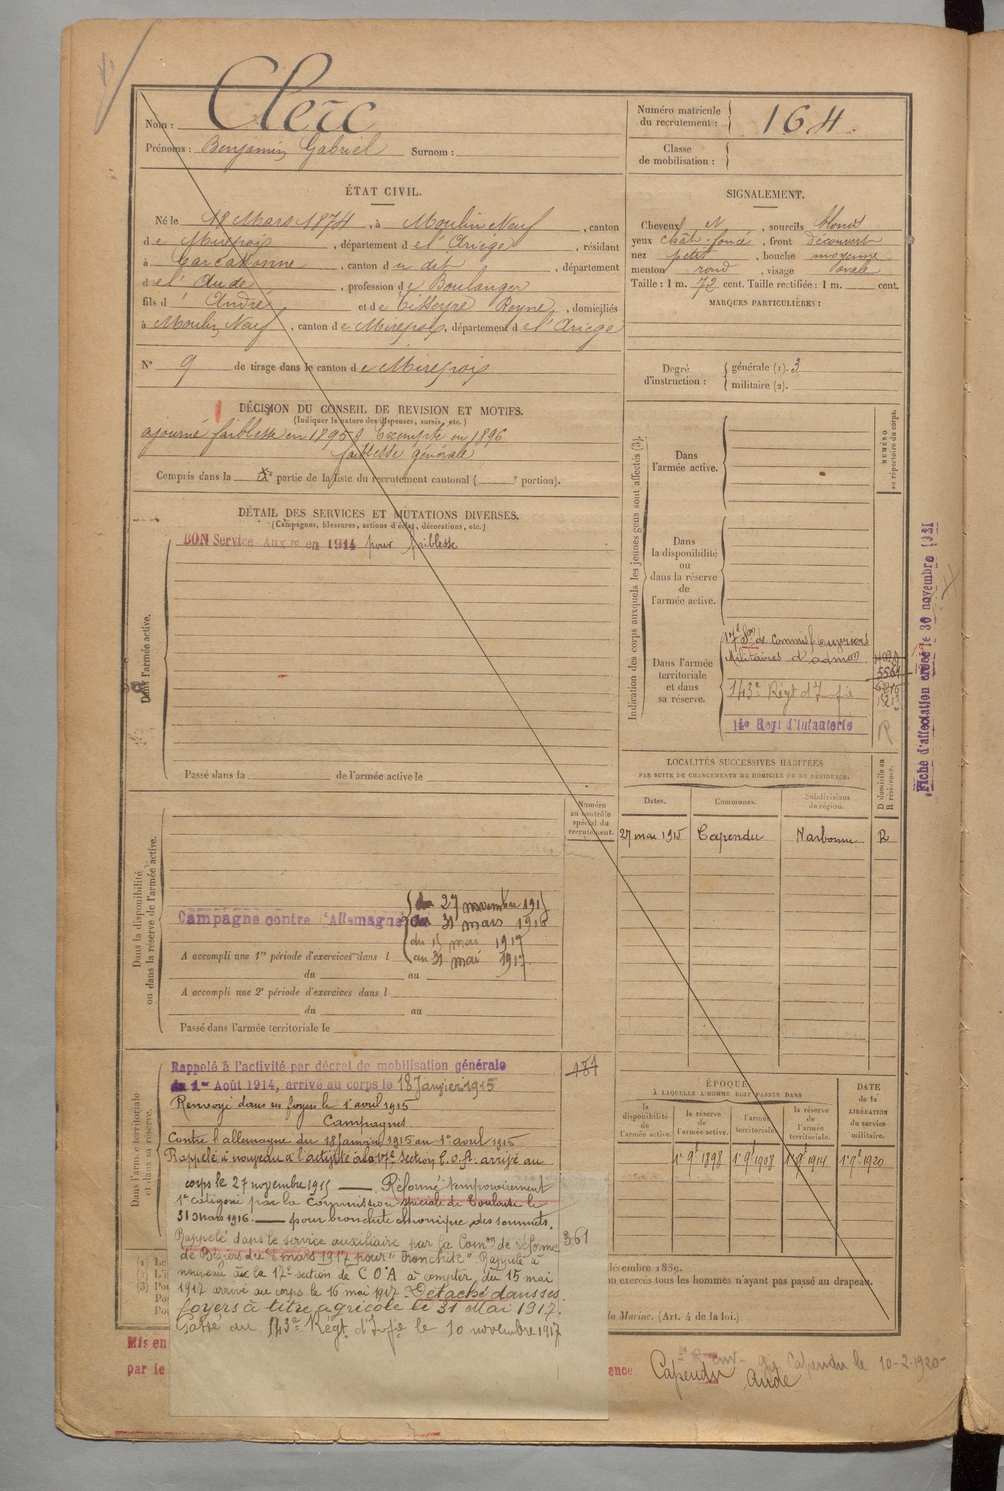 Nom : Clerc
Prénoms : Benjamin Gabriel Surnom :
Numéro matricule du recrutement : 164.
Classe de mobilisation :
ÉTAT CIVIL.
Né le 18 Mars 1874, à Moulin Neuf, canton
de Mirepoix, département de l'Ariège, résidant
à Carcassonne, canton d en det, département
de l'Aude, profession de Boulanger
fils d' André et de Tisseyre Reyne, domiciliés
à Moulin Neuf, canton de Mirepoix, département de l'Ariège
N° 9 de tirage dans le canton de Mirepoix
SIGNALEMENT.
Cheveux N, sourcils blond
yeux chât-foncé, front découvert
nez petit, bouche moyenne
menton rond, visage ovale
Taille : 1 m. 72 cent. Taille rectifiée : 1 m. cent.
MARQUES PARTICULIÈRES :
Degré d'instruction : générale (1). 3
militaire (2).
DÉCISION DU CONSEIL DE REVISION ET MOTIFS.
(Indiquer la nature des dispenses, sursis, etc.)
ajourné faiblesse en 1895. Exempté en 1896
faiblesse générale
Compris dans la partie de la liste du recrutement cantonal ( portion).
DÉTAIL DES SERVICES ET MUTATIONS DIVERSES.
(Campagnes, blessures, actions d'éclat, décorations, etc.)
BON Service Aux re en 1914 pour faiblesse
Dans l'armée active.
Passé dans la de l'armée active le
Indication des corps auxquels les jeunes gens sont affectés (3).
NUMÉRO au répertoire du corps.
Dans l'armée active.
Dans la disponibilité ou dans la réserve de l'armée active.
Dans l'armée territoriale et dans sa réserve.
17e Son de Commis ouvriers
Militaires d'admon
5561
143e Régt d'Infie
14e Régt d'Infanterie
R
Fiche d'affectation créée le 30 novembre 1921
LOCALITÉS SUCCESSIVES HABITÉES
PAR SUITE DE CHANGEMENTS DE DOMICILE OU DE RÉSIDENCE.
Dates. Communes. Subdivisions de région. D domicile ou R résidence.
27 mai 1915 Capendu Narbonne R
Dans la disponibilité ou dans la réserve de l'armée active.
Numéro au contrôle spécial du recrutement.
Campagne contre l'Allemagne
du 27 novembre 1915
au 31 mars 1916
du 15 mai 1917
au 31 mai 1917.
A accompli une 1re période d'exercices dans l
du au
A accompli une 2e période d'exercices dans l
du au
Passé dans l'armée territoriale le
Dans l'armée territoriale et dans sa réserve.
Rappelé à l'activité par décret de mobilisation générale
du 1er Août 1914, arrivé au corps le 18 Janvier 1915
Renvoyé dans ses foyers le 1er avril 1915
Campagnes
Contre l'allemagne du 18 janvier 1915 au 1er avril 1915
Rappelé à nouveau à l'activité à la 17e Section C.O.A. arrivé au
corps le 27 novembre 1915 — Réformé temporairement
1re catégorie par la Commission spéciale de Toulouse le
31 mars 1916. — pour bronchite chronique des sommets.
Rappelé dans le service auxiliaire par la Comon de réforme
de Béziers du mars 1917 pour "Bronchite". Rappelé à
nouveau à la 17e section de C O A à compter du 15 mai
1917 arrivé au corps le 16 mai 1917. Détaché dans ses
foyers à titre agricole le 31 Mai 1917.
Passé au 143e Régt d'Infie le 10 novembre 1917
361
ÉPOQUE
À LAQUELLE L'HOMME DOIT PASSER DANS
la disponibilité de l'armée active. la réserve de l'armée active. l'armée territoriale. la réserve de l'armée territoriale.
DATE de la LIBÉRATION du service militaire.
1er 9bre 1898 1er 9bre 1908 1er 9bre 1914 1er 9bre 1920
on exercés tous les hommes n'ayant pas passé au drapeau.
la Marine. (Art. 4 de la loi.)
Mis en
par le
ence
Capendu Aude
Capendu le 10-2-1920